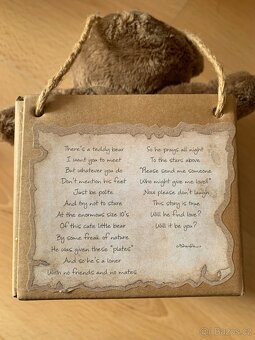 There's a teddy bear
I want you to meet
But whatever you do
Don't mention his feet
Just be polite
And try not to stare
At the enormous size 10's
Of this cute little bear
By some freak of nature
He was given these "plates"
And so he's a loner
With no friends and no mates
So he prays all night
To the stars above
"Please send me someone
Who might give me love!"
Now please don't laugh
This story is true
Will he find love?
Will it be you?